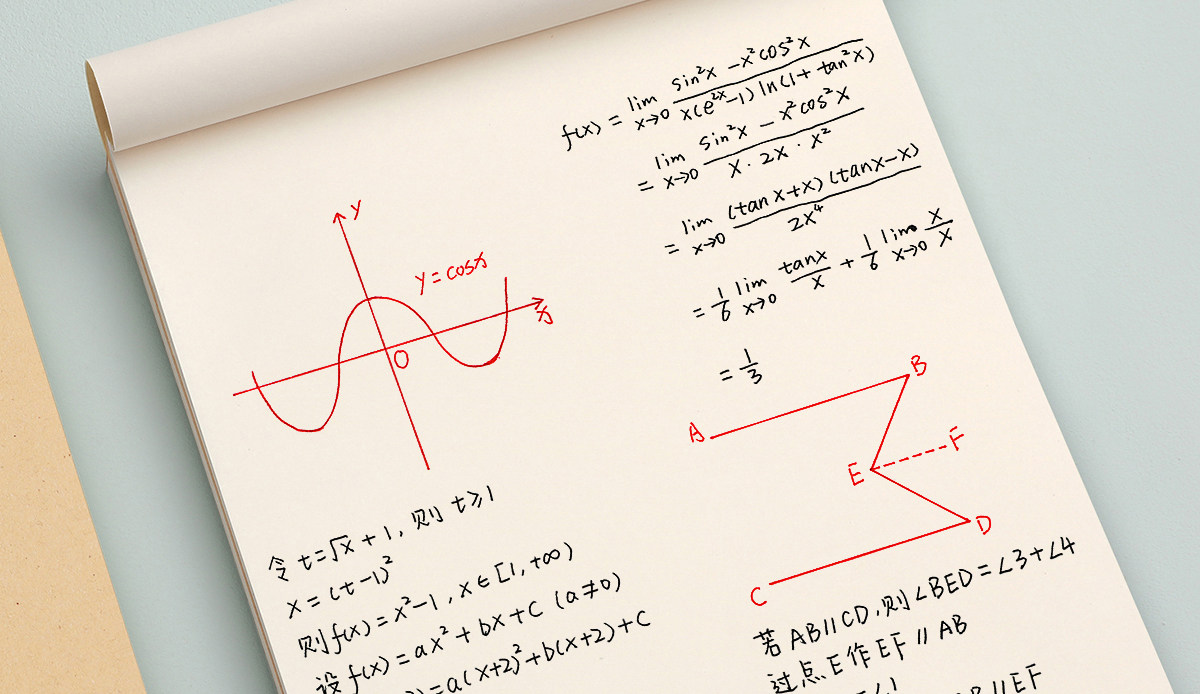 f(x) = lim x→0 (sin²x − x²cos²x) / (x(e²ˣ−1) ln(1+tan²x))
= lim x→0 (sin²x − x²cos²x) / (x · 2x · x²)
= lim x→0 (tanx+x)(tanx−x) / 2x⁴
= 1/6 lim x→0 tanx/x + 1/6 lim x→0 x/x
= 1/3
y
y=cosx
x
O
A
B
E
F
D
C
令 t=√x+1, 则 t≥1
x=(t-1)²
则f(x)=x²-1, x∈[1,+∞)
设f(x)=ax²+bx+c (a≠0)
)=a(x+2)²+b(x+2)+c
若AB∥CD,则∠BED=∠3+∠4
过点E作EF∥AB
∠1
B∥EF